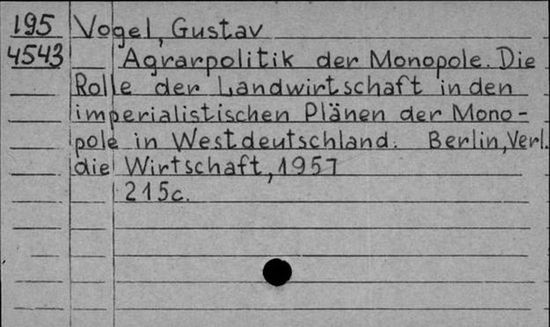 195 Vogel, Gustav
4543 Agrarpolitik der Monopole. Die
Rolle der Landwirtschaft in den
imperialistischen Plänen der Mono-
pole in Westdeutschland. Berlin, Verl.
die Wirtschaft, 1957
215c.